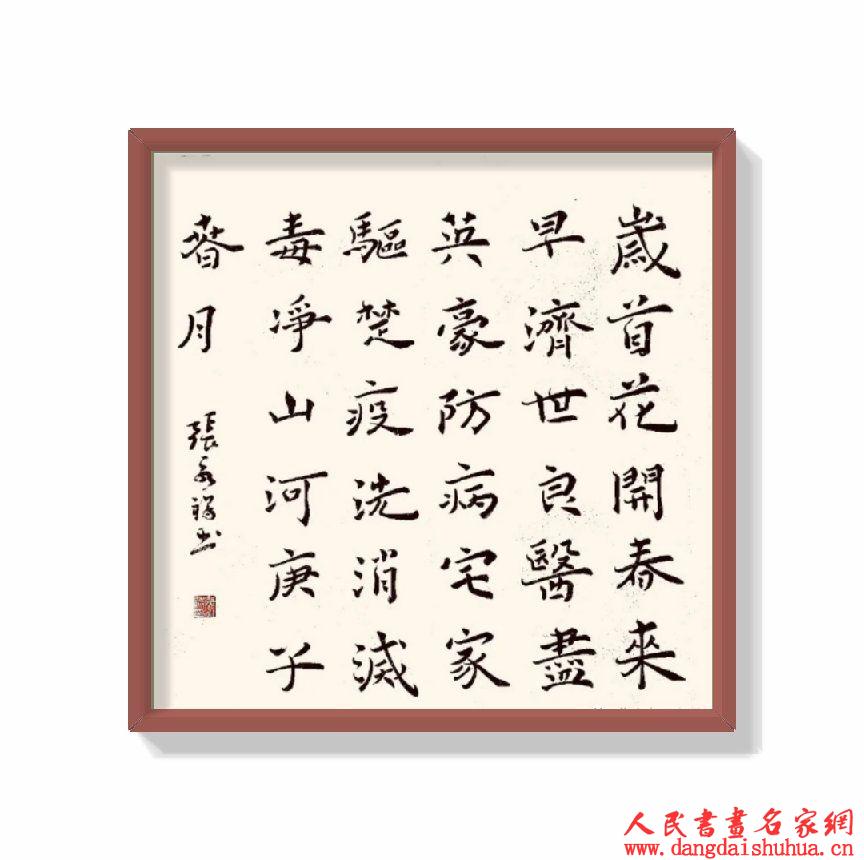 歲首花開春來
早濟世良醫盡
英豪防病宅家
驅楚疫洗消滅
毒凈山河庚子
春月
張 祥书
人民書畫名家網
www.dangdaishuhua.cn